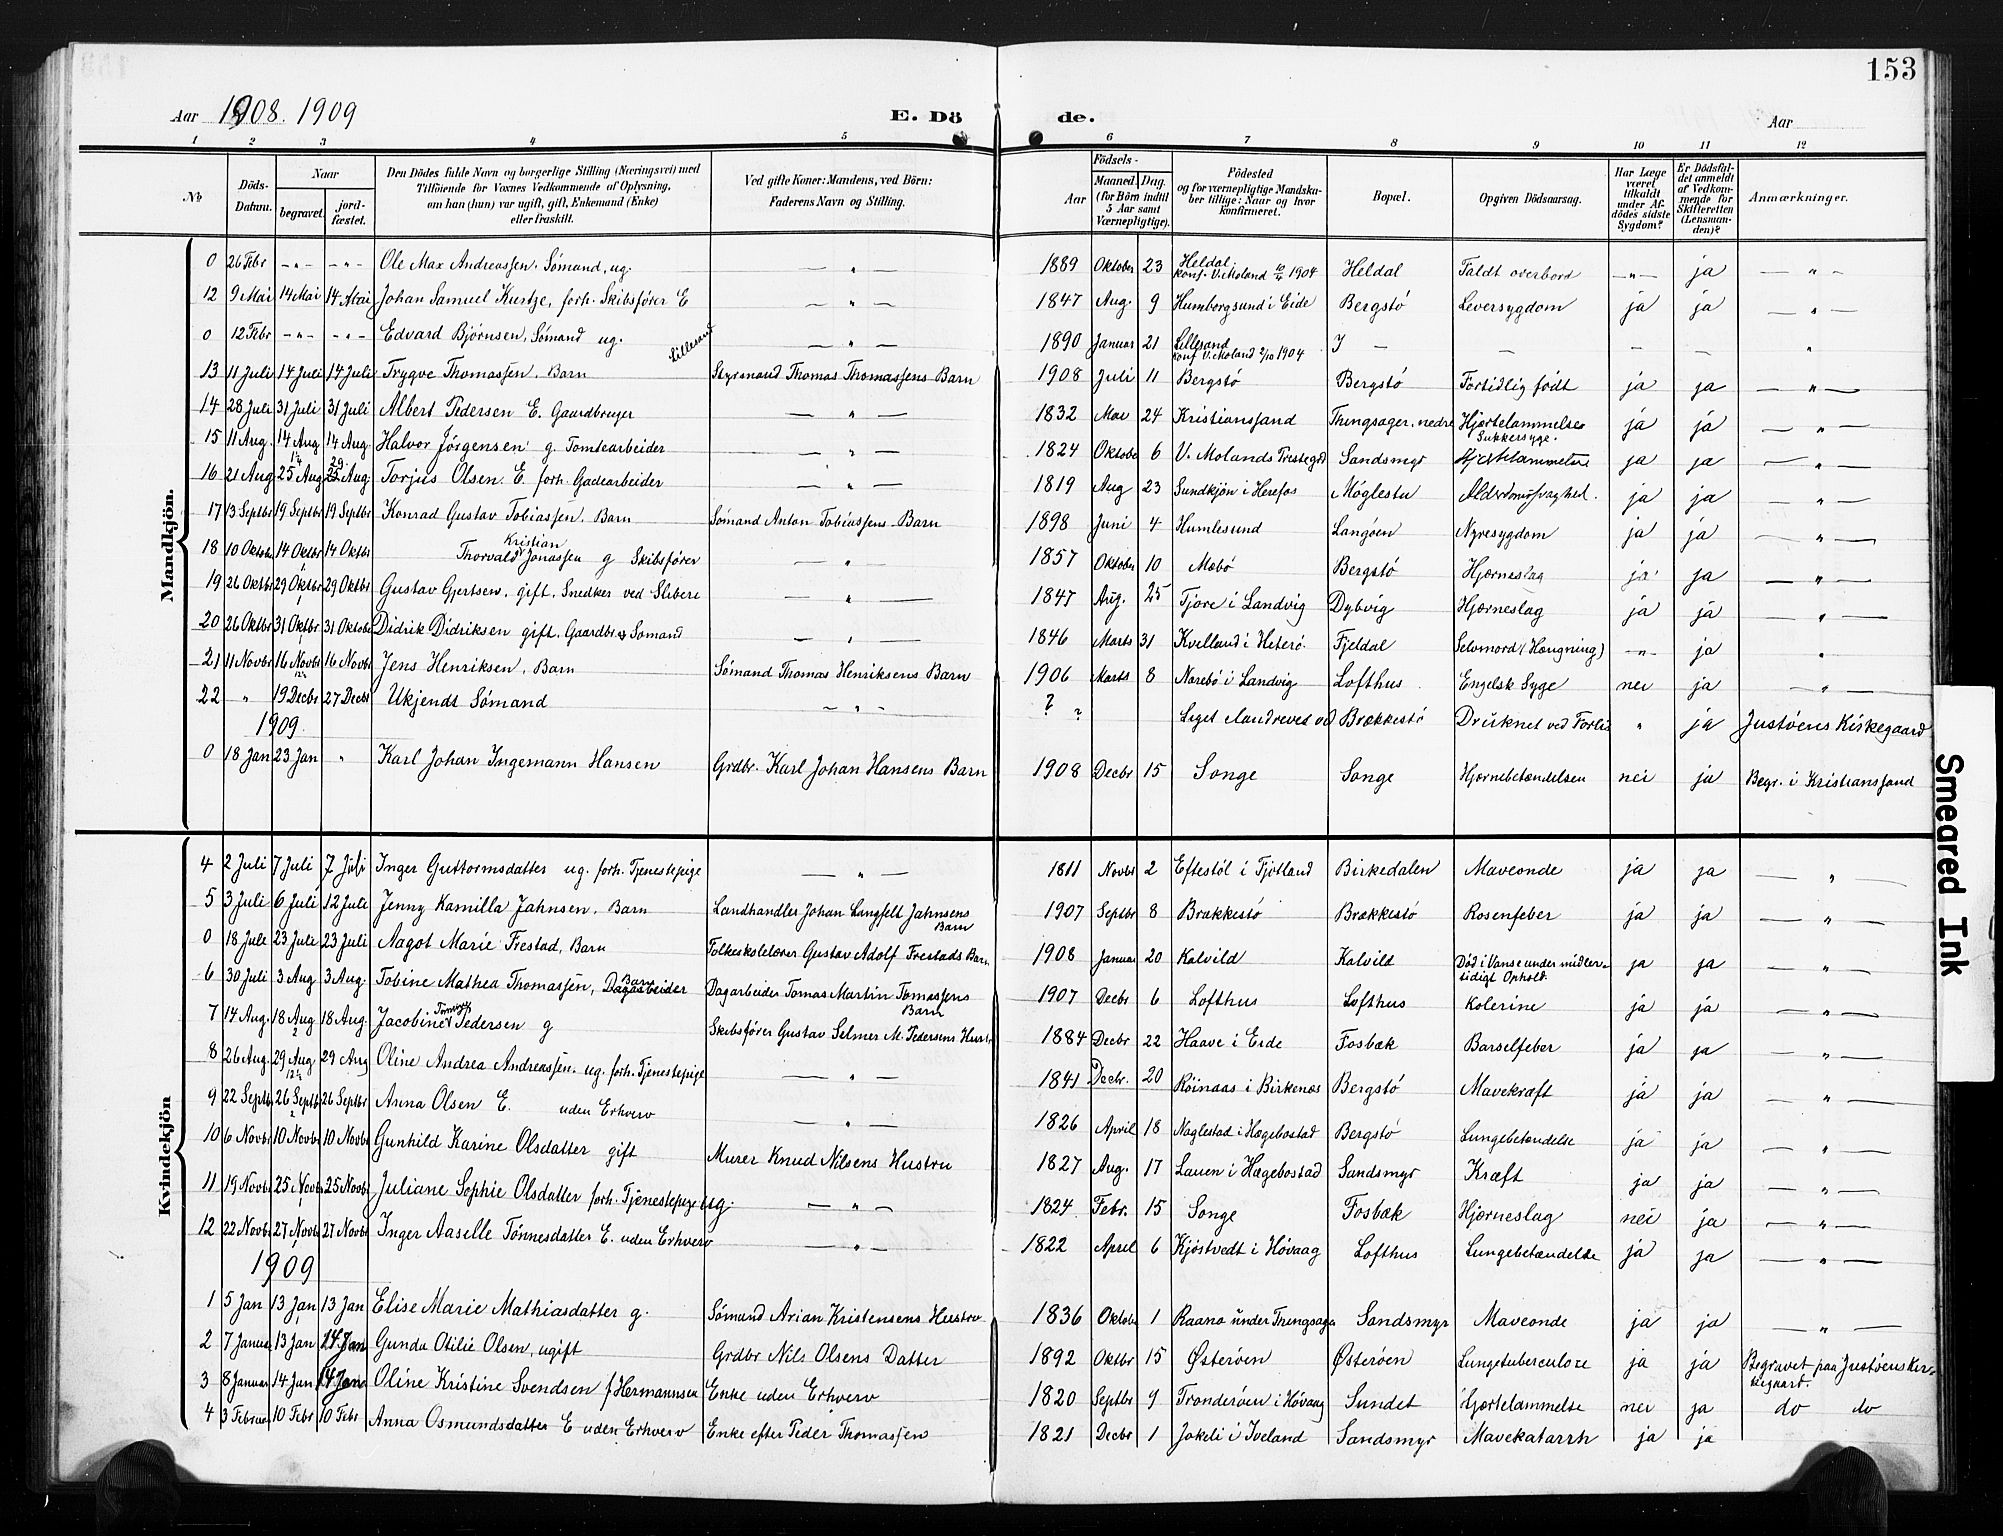 153
Aar 1908. 1909 E. Dö de. Aar
1 2 3 4 5 6 7 8 9 10 11 12
No
Döds-Datum.
Naar
begravet.
jord-fæstet.
Den Dödes fulde Navn og borgerlige Stilling (Næringsvei) med
Tilföiende for Voxnes Vedkommende af Oplysning,
om han (hun) var ugift, gift, Enkemand (Enke)
eller fraskilt.
Ved gifte Koner: Mandens, ved Börn:
Faderens Navn og Stilling.
Födsels-
Aar
Maaned. Dag.
(for Börn indtil 5 Aar samt Værnepligtige).
Födested
og for værnepligtige Mandskaber tillige: Naar og hvor konfirmeret.
Bopæl.
Opgiven Dödsaarsag.
Har Læge været tilkaldt under Afdödes sidste Sygdom?
Er Dödsfaldet anmeldt af Vedkommende for Skifteretten (Lensmanden)?
Anmærkninger.
Mandkjön.
0 26 Febr -"- -"- Ole Max Andreassen. Sömand, ug. — " — 1889 Oktober 23 Heldal. konf. V. Moland 10/4 1904 Heldal Faldt overbord -"- ja — " —
12 9 Mai 14 Mai 14 Mai Johan Samuel Kurtze, forh. Skibsfører E — " — 1847 Aug. 9 Humborgsund i Eide Bergstö Leversygdom ja ja — " —
0 12 Febr -"- -"- Edvard Björnsen, Sömand ug. Lillesand — " — 1890 Januar 21 Lillesand konf V. Moland 2/10 1904 — — — — "
13 11 Juli 14 Juli 14 Juli Trygve Thomassen. Barn Styrmand Thomas Thomassens Barn 1908 Juli 11 Bergstö Bergstö Fortidlig født ja ja — " —
14 28 Juli 31 Juli 31 Juli Albert Pedersen E. Gaardbruger — " — 1832 Mai 24 Kristianssand Thingsager, nedre Hjertelammelse ja ja — " —
15 11 Aug. 14 Aug 14 Aug. Halvor Jörgensen g. Tomtearbeider — " — 1824 Oktobe 6 V. Molands Prestegrd Sandsmyr Sukkersyge. Hjertelammelse ja ja — " —
16 21 Aug 25 Aug 29 25 Aug. Torjus Olsen E. forh. Gadearbeider — " — 1819 Aug 23 Sundkjön i Herefos Möglestu Alderdomssvaghed. ja ja — " —
17 13 Septbr 19 Septbr 19 Septbr Konrad Gustav Tobiassen. Barn Sömand Anton Tobiassens Barn 1898 Juni 4 Humlesund Langöen Nyresygdom ja ja — " —
18 10 Oktbr 14 Oktbr 14 Oktbr Thorvald Kristian Jonassen g Skibsfører — " — 1857 Oktober 10 Mebö Bergstö Hjerneslag ja ja — " —
19 26 Oktbr 29 Oktbr 29 Oktbr Gustav Gjertsen, gift. Snedker ved Sliberi — " — 1847 Aug. 25 Fjöre i Landvig Dybvig Hjerneslag ja ja — " —
20 26 Oktbr 31 Oktbr 31 Oktobe Didrik Didriksen gift. Gaardbr. og Sömand — " — 1846 Marts 31 Kvelland i Hiterö. Fjeldal Selvmord (Hængning) -"- ja "
21 11 Novbr 16 Novbr 16 Novbr Jens Henriksen, Barn Sömand Thomas Henriksens Barn 1906 Marts 8 Norebö i Landvig Lofthus Engelsk Syge nei ja — " —
22 " 19 Decbr 27 Decbr Ukjendt Sömand — " — ? ? Liget ilanddrevet ved Brækkestö Druknet ved Forlis " ja Justöens Kirkegaard
1909
0 18 Jan 23 Jan " Karl Johan Ingemann Hansen Grdbr. Karl Johan Hansens Barn 1908 Decbr 15 Songe Songe Hjernebetændelsen nei ja Begr. i Kristianssand
Kvindekjön
4 2 Juli 7 Juli 7 Juli Inger Guttormsdatter ug. forh. Tjenestepige — " — 1811 Novbr 2 Eftestöl i Fjotland Birkedalen Maveonde ja ja — " —
5 3 Juli 6 Juli 12 Juli Jenny Kamilla Jahnsen. Barn Landhandler Johan Langfelt Jahnsens Barn 1907 Septbr 8 Brækkestö Brækkestö Rosenfeber ja ja — " —
0 18 Juli 23 Juli 23 Juli Aagot Marie Frestad, Barn Folkeskolelærer Gustav Adolf Frestads Barn 1908 Januar 20 Kalvild Kalvild Död i Vanse under midler-tidigt Ophold. ja ja — " —
6 30 Juli 3 Aug 3 Aug. Tobine Mathea Thomassen, Barn Dagarbeider Dagarbeider Tomas Martin Tomassens Barn 1907 Decbr 6 Lofthus Lofthus Kolerine ja ja — " —
7 14 Aug. 18 Aug 18 Aug. Jacobine Pedersen g Skibsfører Gustav Selmer M. Pedersens Hust. 1884 Decbr 22 Haave i Eide Fosbæk Barselfeber ja ja — " —
8 26 Aug. 29 Aug 29 Aug Oline Andrea Andreassen. ug. forh. Tjenestepige — " — 1841 Decbr. 20 Röinaas i Birkenæs Bergstö Mavekræft ja ja — " —
9 22 Septb 26 Septb 26 Septbr Anna Olsen E. uden Erhverv — " — 1826 April 18 Naglestad i Hægebostad Bergstö Lungebetændelse ja ja — " —
10 6 Novbr 10 Novbr 10 Novbr Gunhild Karine Olsdatter gift Murer Knud Nilsens Hustru 1827 Aug. 17 Lauen i Hægebostad Sandsmyr Kræft ja ja — " —
11 19 Novbr 25 Novbr 25 Novbr Juliane Sophie Olsdatter forh. Tjenestepige ug. — " — 1824 Febr. 15 Songe Fosbæk Hjerneslag nei ja — " —
12 22 Novbr 27 Novbr 27 Novbr Inger Aaselle Tönnesdatter E. uden Erhverv — " — 1822 April 6 Kjöstvedt i Hövaag Lofthus Lungebetændelse ja ja — " —
1909
1 5 Jan 13 Jan 13 Jan Elise Marie Mathiasdatter g. Sömand Arian Kristensens Hustru 1836 Oktobe 1 Raanø under Thingsager Sandsmyr Maveonde ja ja — " —
2 7 Januar 13 Jan 14 Jan Gunda Otilie Olsen, ugift Grdbr Nils Olsens Datter 1892 Oktbr 15 Østerøen Østerøen Lungetuberculose ja ja Begravet paa Justöens Kirkegaard.
3 8 Januar 14 Jan 14 Jan Oline Kristine Svendsen f. Hermannsen Enke uden Erhverv 1820 Septbr 9 Tronderöen i Hövaag Sundet Hjertelammelse nei ja do do
4 3 Februar 10 Febr 10 Febr Anna Osmundsdatter E uden Erhverv Enke efter Peder Thomassen 1821 Decbr 1 Jokeli i Iveland Sandsmyr Mavekatarrh ja ja
Smeared Ink